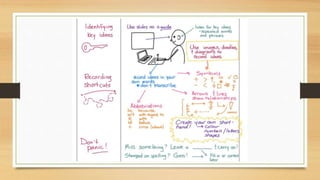 Identifying
key ideas
Use slides as a guide
Listen for key ideas
- repeated words
and phrases
Use images, doodles,
& diagrams to
record ideas
Recording
shortcuts
Record ideas in your
own words
* don't transcribe
Symbols
Arrows & lines
show relationships
Abbreviations
because
with regard to
before
Create your own short-
hand!
colour
numbers/letters
shapes
Don't
panic!
Miss something? Leave a
& carry on!
Stumped on spelling? Guess!
Fill in or correct
later